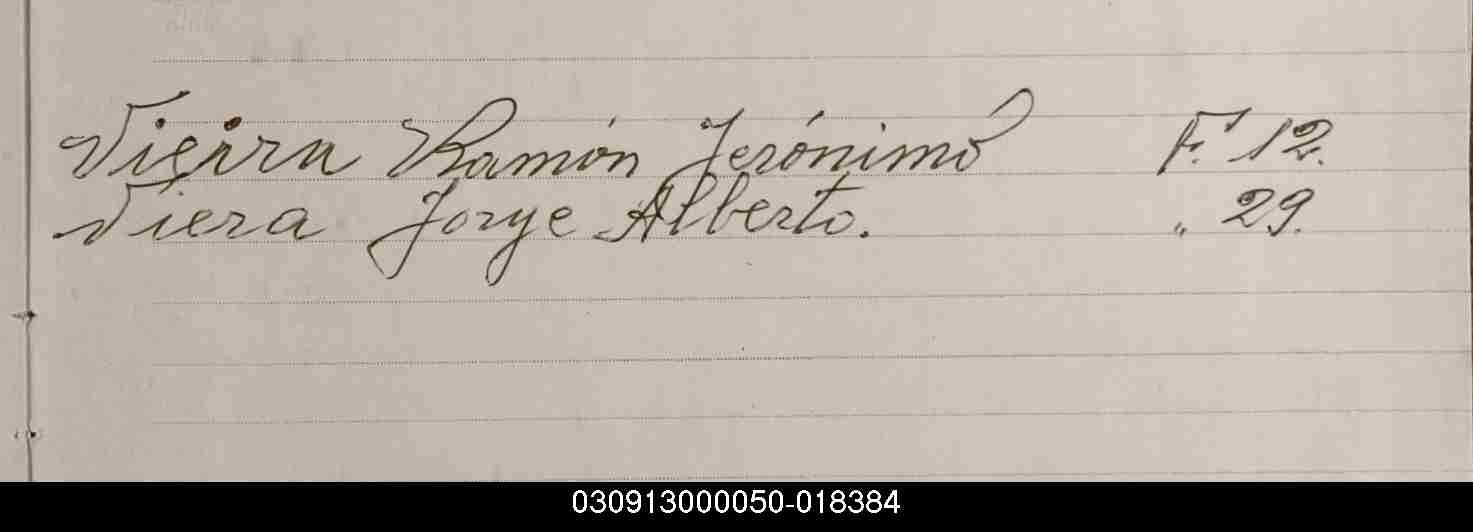 Vieira Ramón Jerónimo F. 12.
Viera Jorge Alberto. „ 29.
030913000050-018384